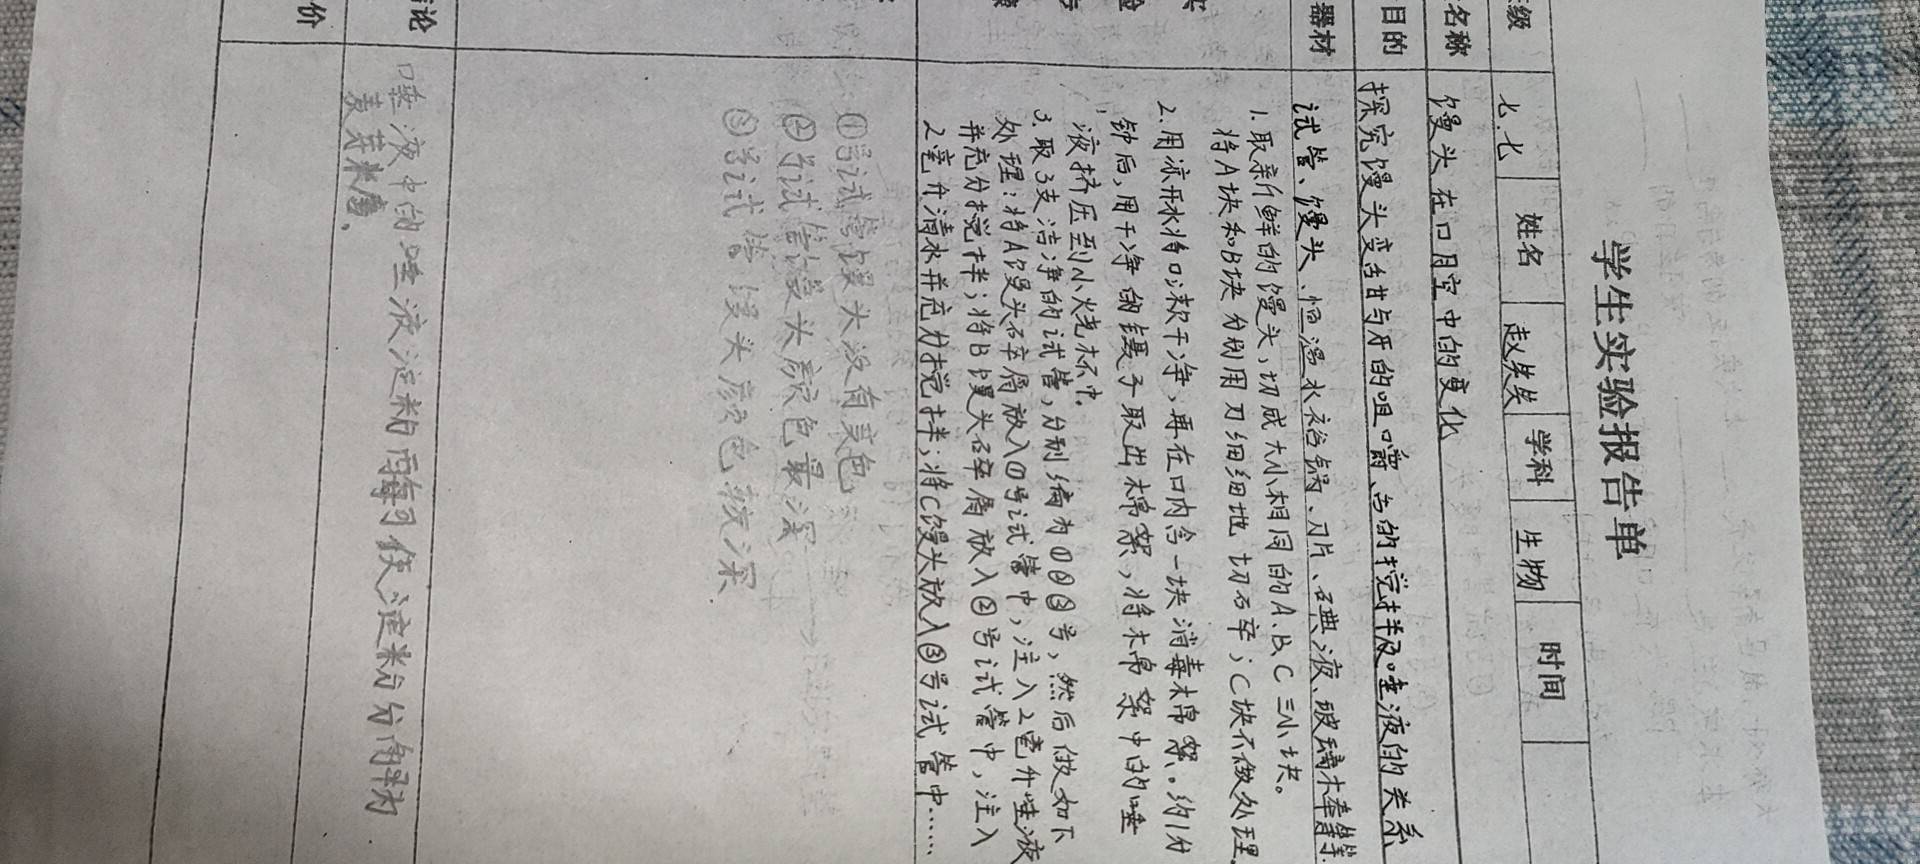 学生实验报告单
级 七.七 姓名 赵 学科 生物 时间
名称 馒头在口腔中的变化
目的 探究馒头变甜与牙的咀嚼、舌的搅拌及唾液的关系
器材 试管、馒头、恒温水浴锅、刀片、碘液、玻璃棒等
1.取新鲜的馒头,切成大小相同的A、B、C三小块。
将A块和B块分别用刀细细地切碎;C块不做处理。
2.用凉开水将口漱干净,再在口内含一块消毒棉絮。约1分
钟后,用干净的镊子取出棉絮,将棉絮中的唾
液挤压到小烧杯中。
3.取3支洁净的试管,分别编为①②③号,然后做如下
处理:将A馒头碎屑放入①号试管中,注入2毫升唾液
并充分搅拌;将B馒头碎屑放入②号试管中,注入
2毫升清水并充分搅拌;将C馒头放入③号试管中……
①号试管馒头没有变色
②号试管馒头颜色最深
③号试管馒头颜色较深
论 唾液中的唾液淀粉酶可使淀粉分解为
麦芽糖.
价